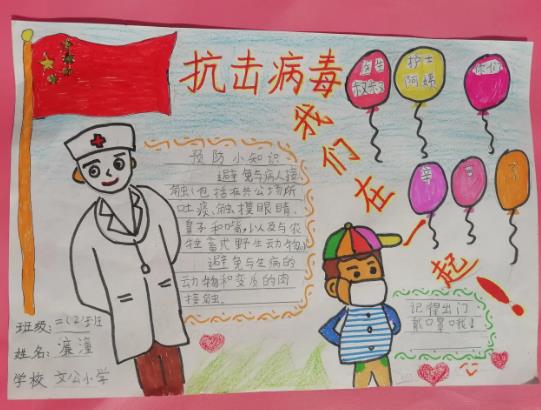 抗击病毒
我们在一起!
医生
叔叔
护士
阿姨
你们
辛
苦
了
预防小知识
避免与病人接
触(包括在共公场所
吐痰,触摸眼睛、
鼻子和嘴,以及与农
牲畜或野生动物。
避免与生病的
动物和变质的肉
接触。
记得出门
戴口罩哦!
班级:二(2)班
姓名:廉潼
学校 文公小学